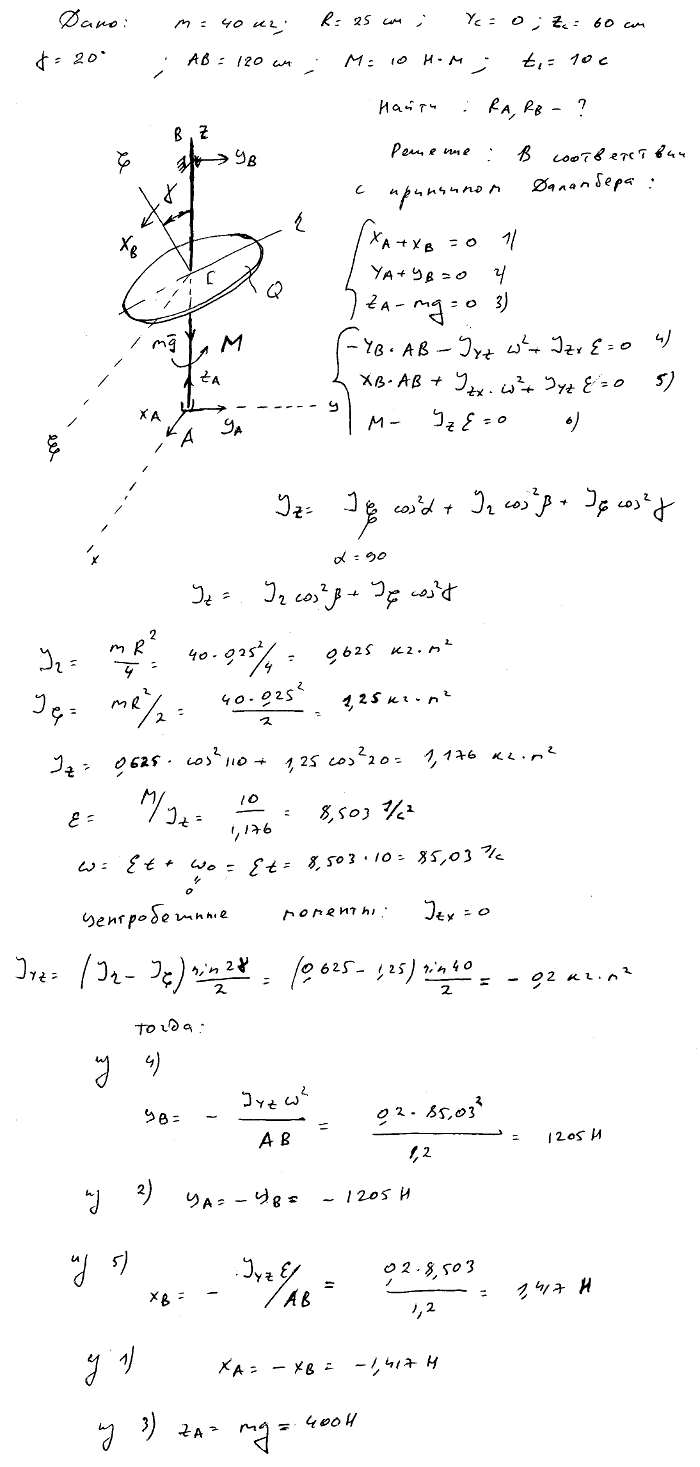 Дано: m = 40 кг; R = 25 см; Yc = 0; Zc = 60 см
γ = 20°; AB = 120 см; M = 10 Н·м; t₁ = 10 с
Найти: RA, RB - ?
Решение: В соответствии
с принципом Даламбера:
B z
ζ
yB
γ
xB
η
C
Q
mg
M
zA
xA
y
A
yA
ξ
x
XA + XB = 0 1)
YA + YB = 0 2)
ZA - mg = 0 3)
-YB·AB - Jyz ω² + Jzx ε = 0 4)
XB·AB + Jzx·ω² + Jyz ε = 0 5)
M - Jz ε = 0 6)
Jz = Jξ cos²α + Jη cos²β + Jζ cos²γ
α = 90
Jz = Jη cos²β + Jζ cos²γ
Jη = mR²/4 = 40·0,25²/4 = 0,625 кг·м²
Jζ = mR²/2 = 40·0,25²/2 = 1,25 кг·м²
Jz = 0,625·cos²110 + 1,25 cos²20 = 1,176 кг·м²
ε = M/Jz = 10/1,176 = 8,503 1/с²
ω = εt + ω₀ = εt = 8,503·10 = 85,03 1/с
0
Центробежные моменты: Jzx = 0
Jyz = (Jη - Jζ) sin2γ/2 = (0,625 - 1,25) sin40/2 = -0,2 кг·м²
тогда:
из 4)
yB = - Jyz ω²/AB = 0,2·85,03²/1,2 = 1205 Н
из 2) yA = -yB = -1205 Н
из 5) xB = - Jyz ε/AB = 0,2·8,503/1,2 = 1,417 Н
из 1) xA = -xB = -1,417 Н
из 3) zA = mg = 400 Н